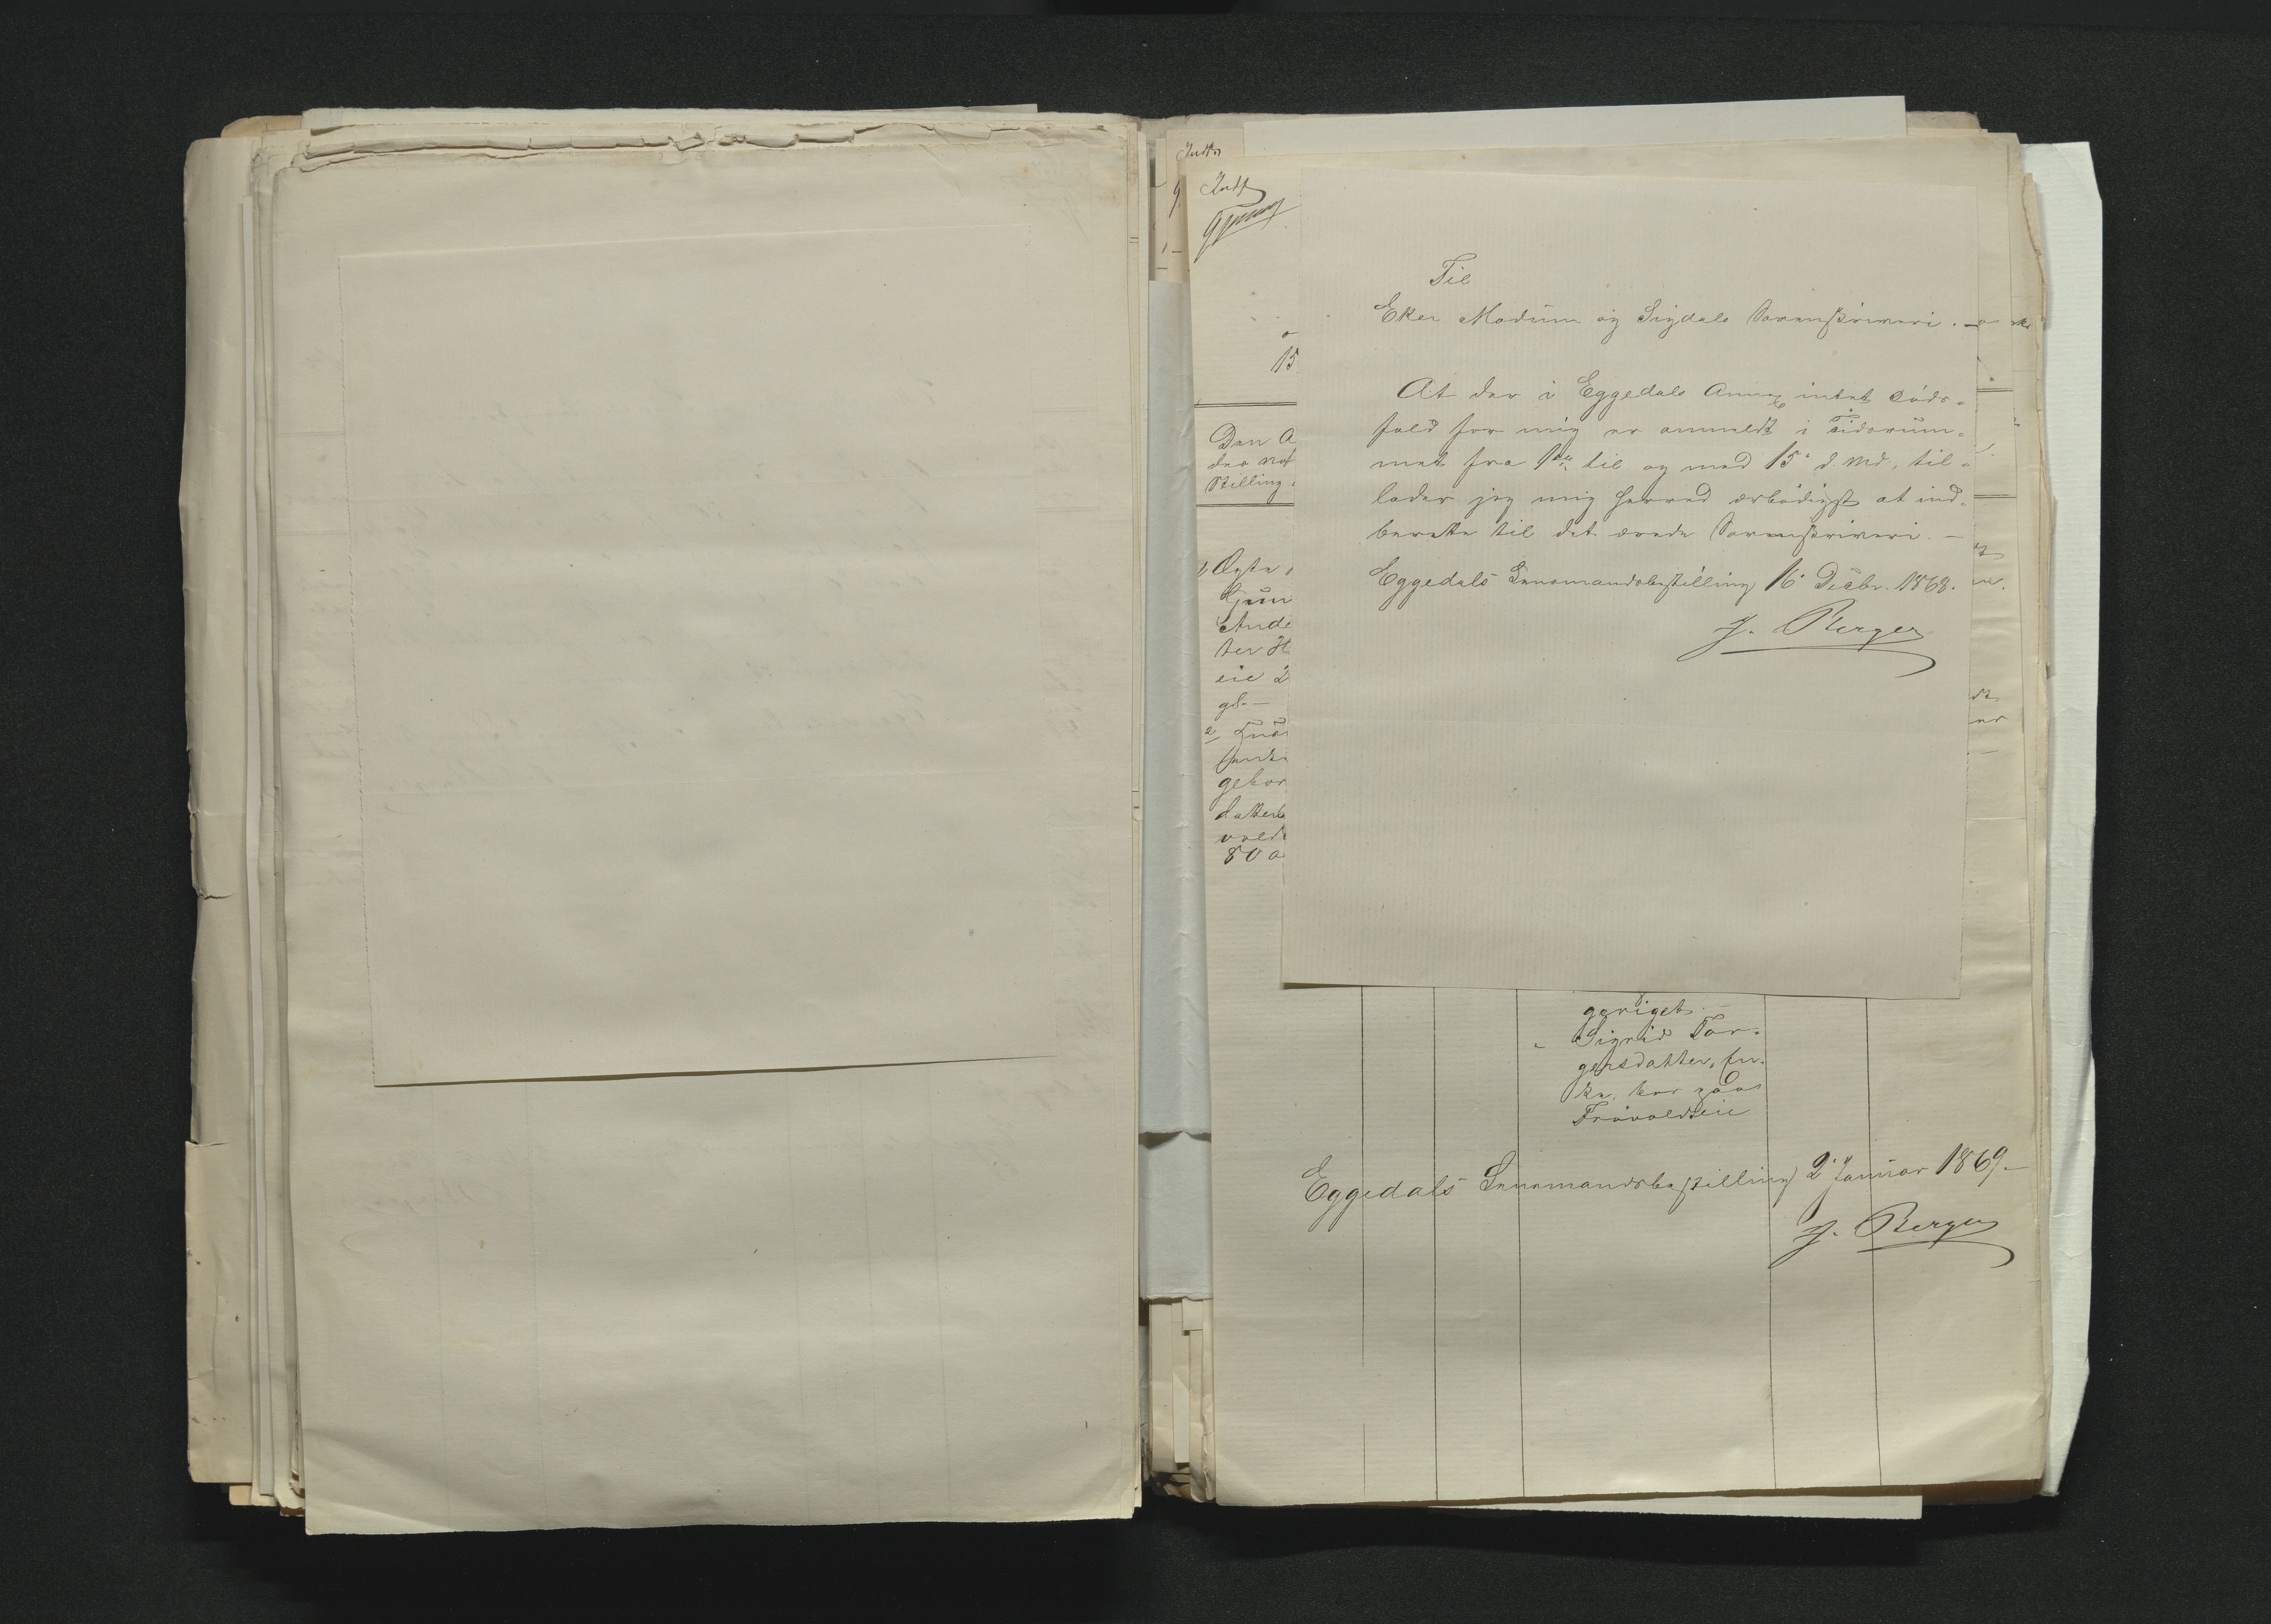 Til
Eker Modum og Sigdals Sorenskriveri.
At der i Eggedals Annex intet Døds-
fald for mig er anmeldt i Tidsrum-
met fra 1ste til og med 15de d. Md, til-
lader jeg mig herved ærbødigst at ind-
berette til det ærede Sorenskriveri. —
Eggedals Lensmandsbestilling 16 Decbr. 1868.
J. Berger
Indf
15
Den A
Stilling
Gun
Ande
ter H
eie 2
gl. —
2
gebor
datter
vold
80 a
Sigrid Tor-
gersdatter, En-
ke, bor paa
Frøvoldseie
Eggedals Lensmandsbestilling 2 Januar 1869 —
J. Berger